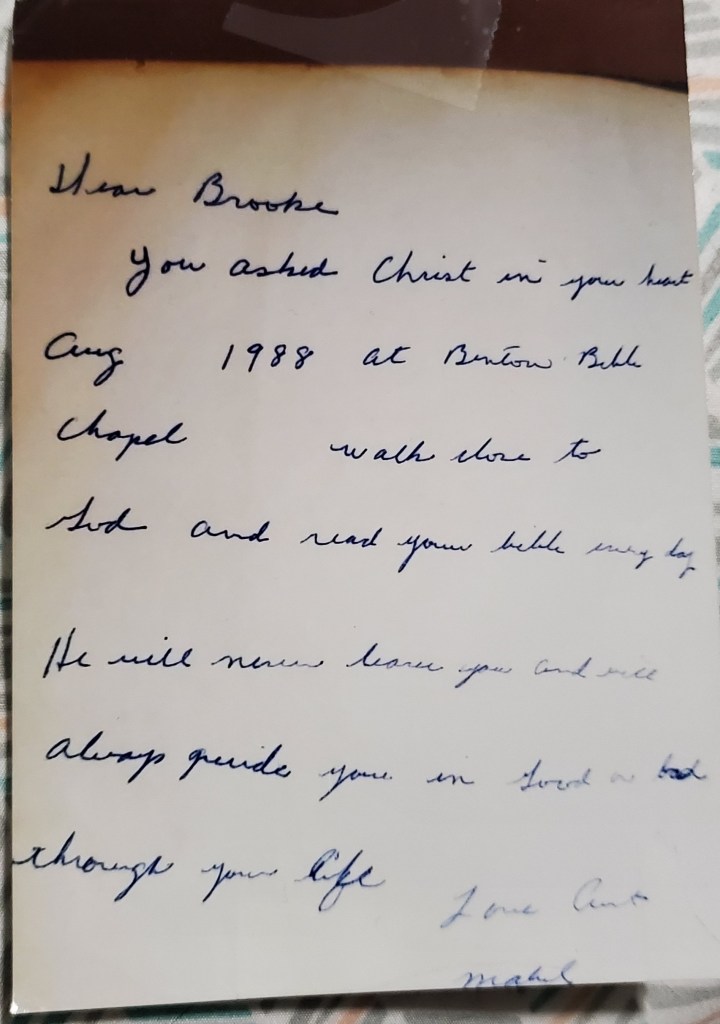 Dear Brooke
You asked Christ in your heart
Aug 1988 at Benton Bible
Chapel walk close to
God and read your bible every day
He will never leave you and will
always guide you in Good or bad
through your life
Love Aunt
Mabel